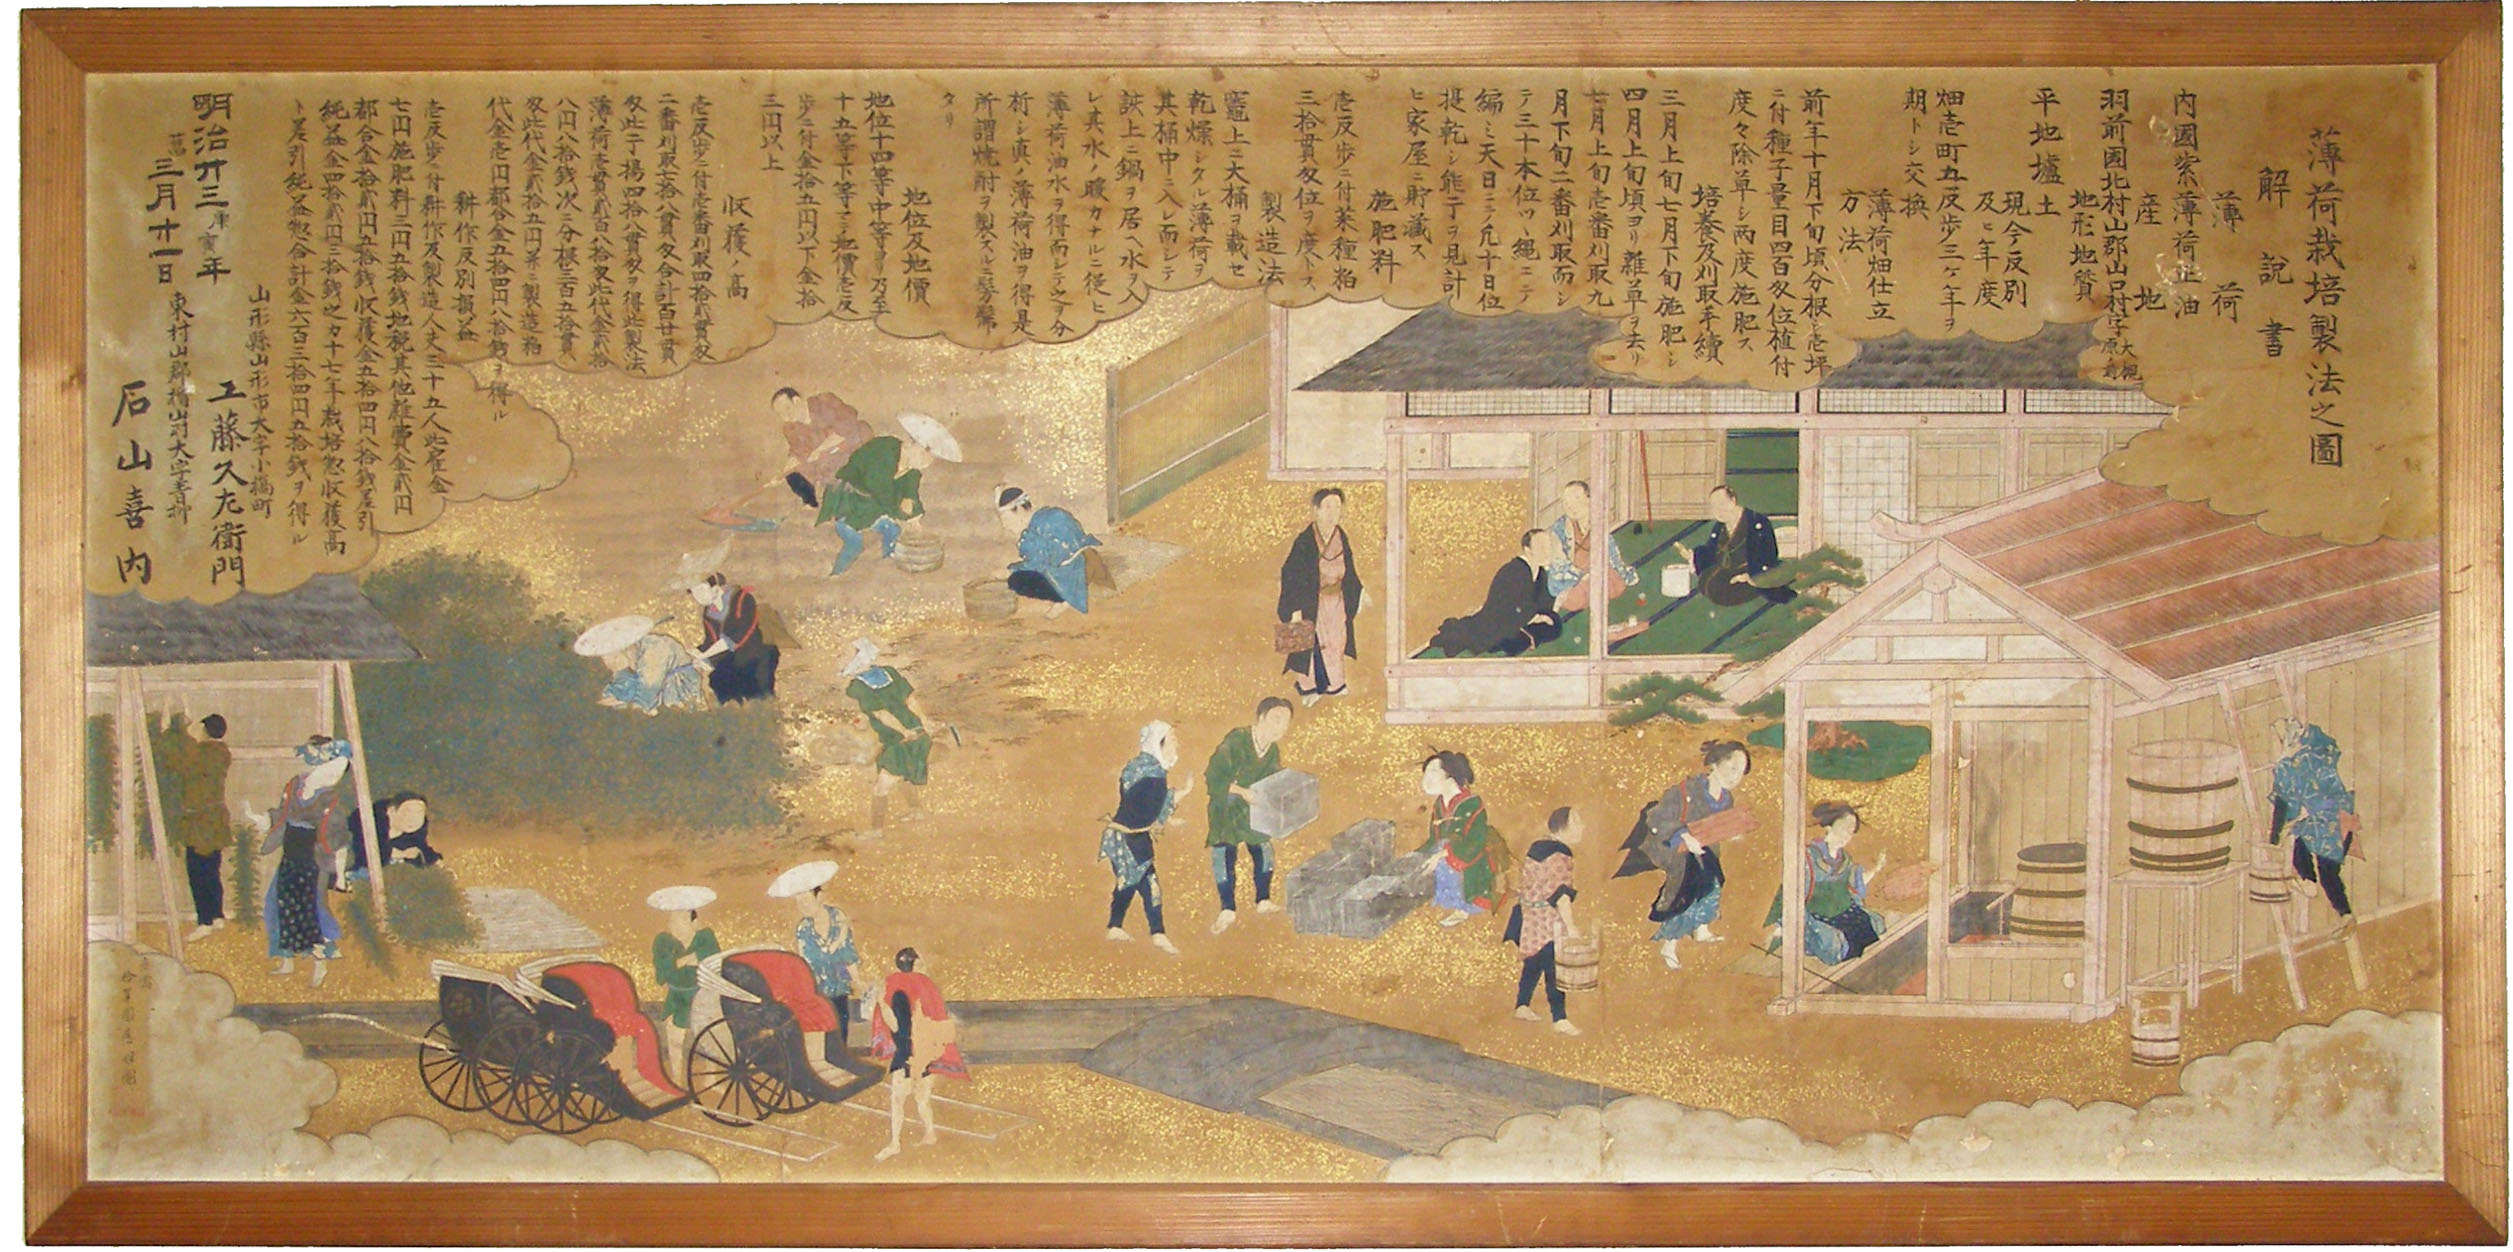 薄荷栽培製法之圖
解說書
薄荷
内國索薄荷正油
産地
羽前國北村山郡山口村字大槻原新
地形地質
平地壚土
現今反別及ヒ年度
畑壱町五反歩三ケ年ヲ
期トシ交換
薄荷畑仕立方法
前年十月下旬頃分根シ壱坪
ニ付種子量目四百匁位植付
度々除草シ両度施肥ス
培養及刈取手續
三月上旬七月下旬施肥シ
四月上旬頃ヨリ雜草ヲ去リ
七月上旬壱番刈取九
月下旬二番刈取而シ
テ三十本位ツヽ縄ニテ
編ミ天日ニテ凡十日位
提乾シ能干ヲ見計
ヒ家屋ニ貯蔵ス
施肥料
壱反歩ニ付菜種粕
三拾貫匁位ヲ度トス
製造法
竈上ニ大桶ヲ載セ
乾燥シタル薄荷ヲ
其桶中ニ入レ而シテ
該上ニ鍋ヲ居ヘ水ヲ入
レ其水ノ暖カナルニ從ヒ
薄荷油水ヲ得而シテ之ヲ分
析シ真ノ薄荷油ヲ得是
所謂焼酎ヲ製スルニ髣髴
タリ
地位及地價
地位十四等中等ヨリ乃至
十五等下等マテ地價壱反
歩ニ付金拾五円以下金拾
三円以上
収獲ノ高
壱反歩ニ付壱番刈取四拾貳貫匁
二番刈取七拾八貫匁合計百廿貫
匁此干揚四拾八貫匁ヲ得此製法
薄荷壱貫貳百八拾匁此代金貳拾
八円八拾銭次ニ分根三百五拾貫
匁此代金貳拾五円外ニ製造粕
代金壱円都合金五拾四円八拾銭ヲ得ル
耕作反別損益
壱反歩ニ付耕作及製造人夫三十五人此雇金
七円施肥料三円五拾銭地税其他雜費金貳円
都合金拾貳円五拾銭収獲金五拾四円八拾銭差引
純益金四拾貳円三拾銭之カ十七年栽培惣収獲高
ト差引純益惣合計金六百三拾四円五拾銭ヲ得ル
山形縣山形市大字小橋町
明治廿三庚寅年
工藤久左衛門
三月廿一日
東村山郡楯山村大字青柳
石山喜内